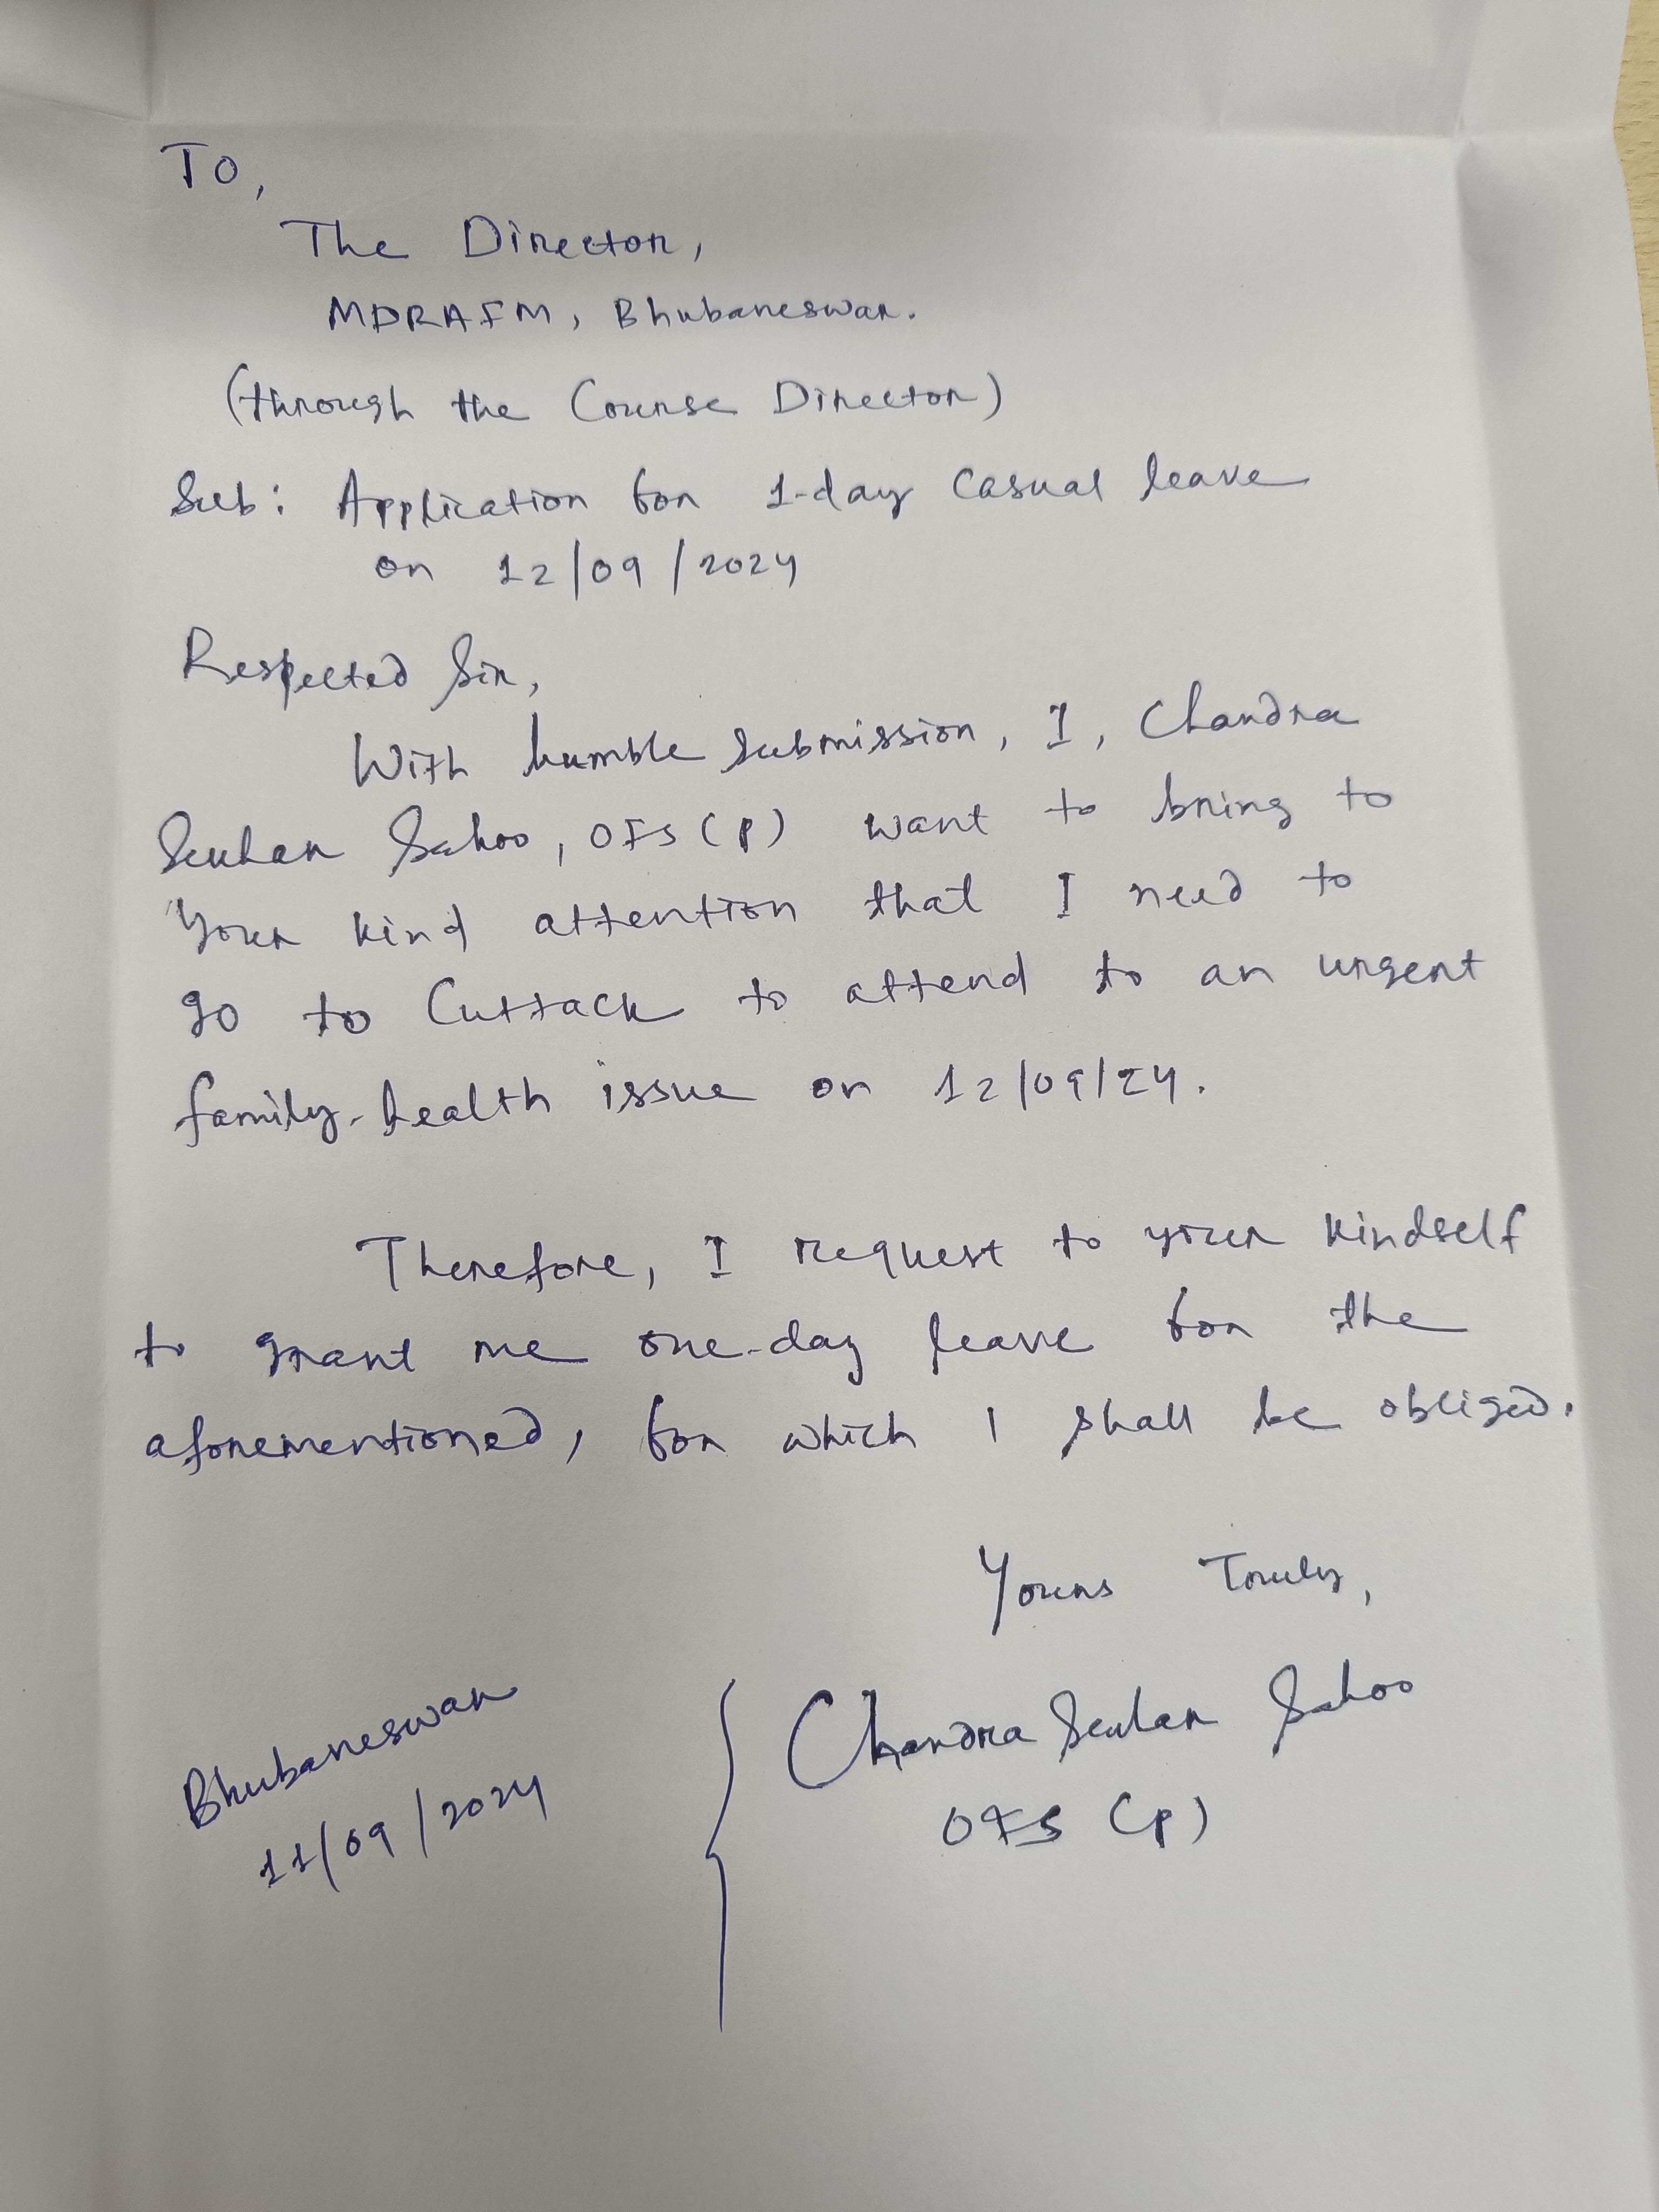 To,
The Director,
MDRAFM, Bhubaneswar.
(through the Course Director)
Sub: Application for 1-day Casual leave
on 12/09/2024
Respected Sir,
With humble submission, I, Chandra
Sekhar Sahoo, OFS (P) want to bring to
Your kind attention that I need to
go to Cuttack to attend to an urgent
family-health issue on 12/09/24.
Therefore, I request to your kindself
to grant me one-day leave for the
aforementioned, for which I shall be obliged.
Yours Truly,
Chandra Sekhar Sahoo
OFS (P)
Bhubaneswar
11/09/2024